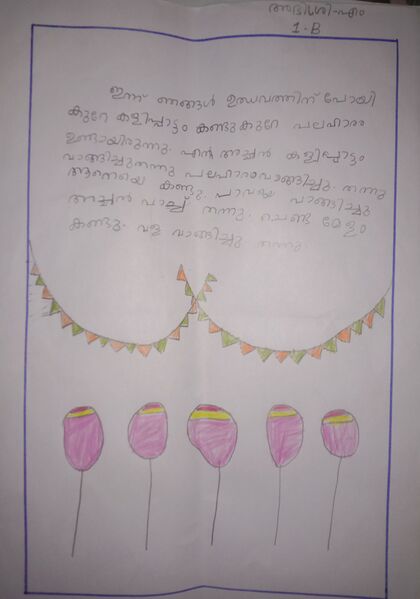 അദിശ്രീ-എം
1-B
ഇന്ന് ഞങ്ങൾ ഉത്സവത്തിന് പോയി
കുറേ കളിപ്പാട്ടം കണ്ടു കുറേ പലഹാരം
ഉണ്ടായിരുന്നു. എൻ അച്ചൻ കളിപ്പാട്ടം
വാങ്ങിച്ചു തന്നു പലഹാരം വാങ്ങിച്ചു തന്നു
ആനയെ കണ്ടു. പാവയെ വാങ്ങിച്ചു
അച്ചൻ തന്നു. ചെണ്ട മേളം
കണ്ടു. വള വാങ്ങിച്ചു തന്നു.